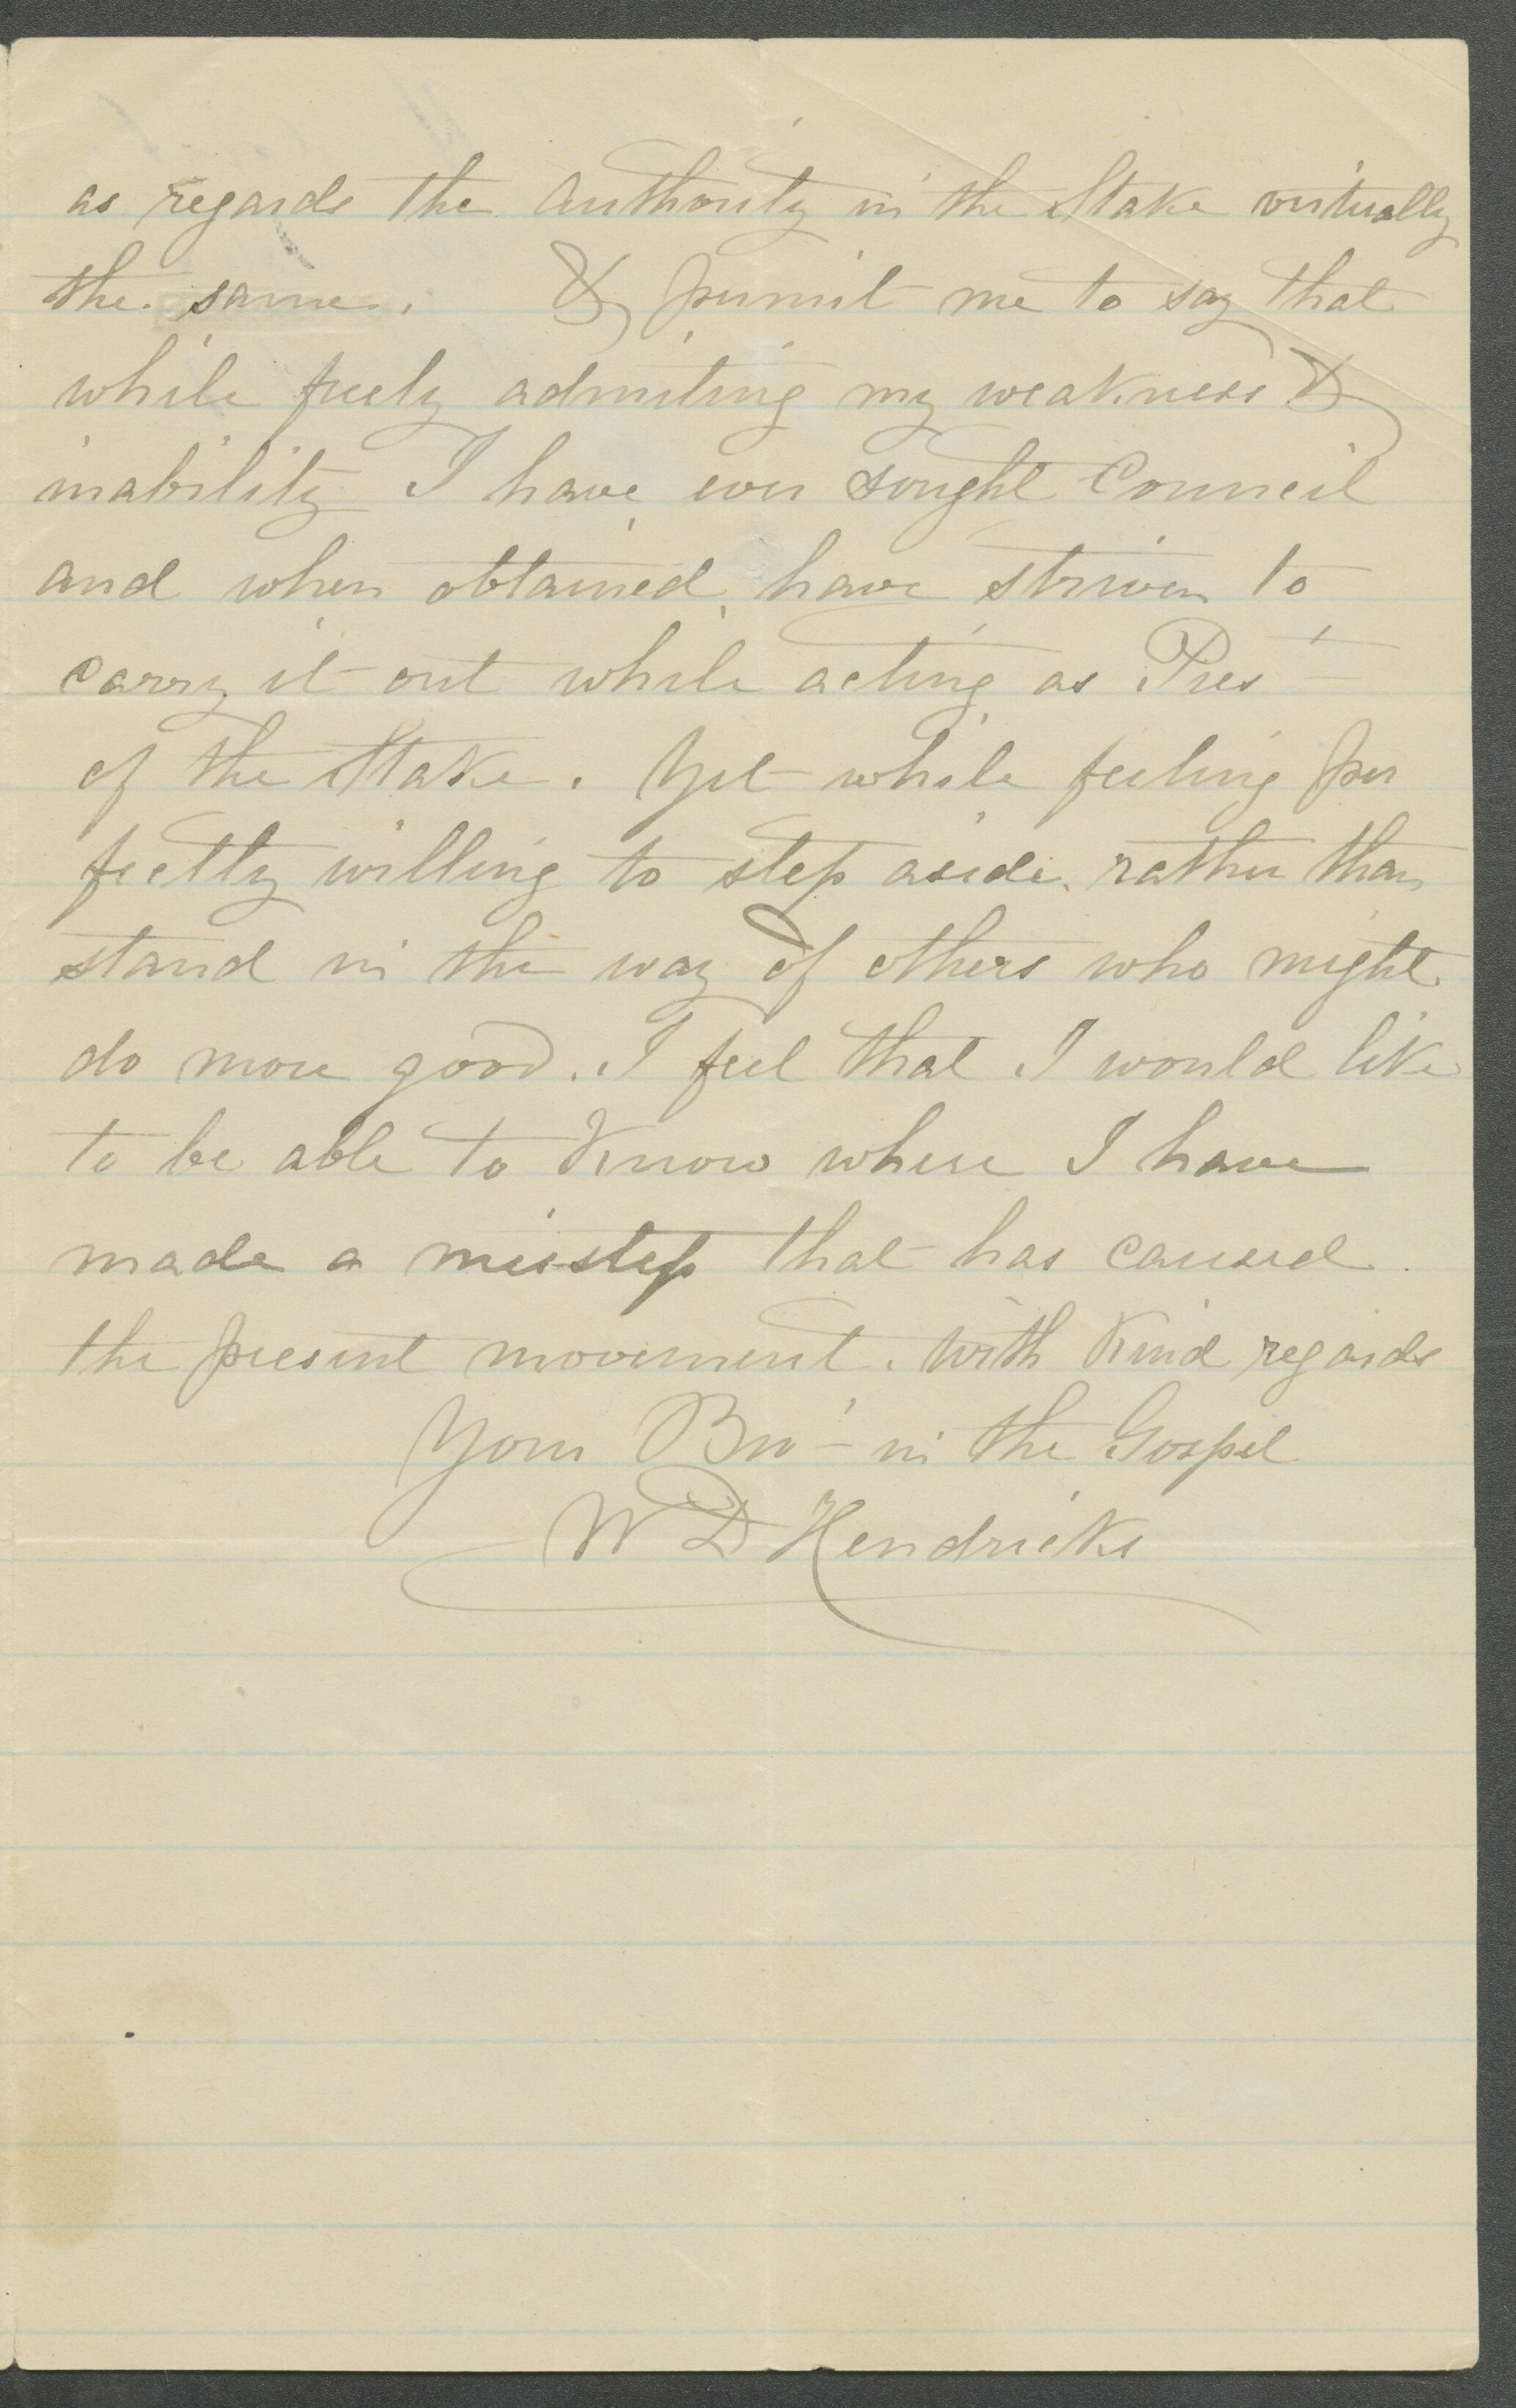 as regards the Authority in the Stake virtually
the same. & permit me to say that
while freely admiting my weakness &
inability I have ever sought Council
and when obtained, have striven to
carry it out while acting as Pres
of the Stake. Yet while feeling per
fectly willing to step aside, rather than
stand in the way of others who might
do more good. I feel that I would like
to be able to Know where I have
made a misstep that has caused
the present movement. With Kind regards
Your Bro in the Gospel
W D Hendricks